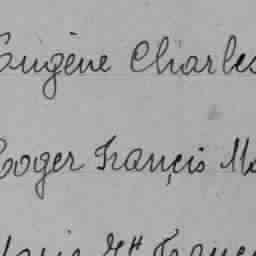 Eugène Charles
Roger François Ma